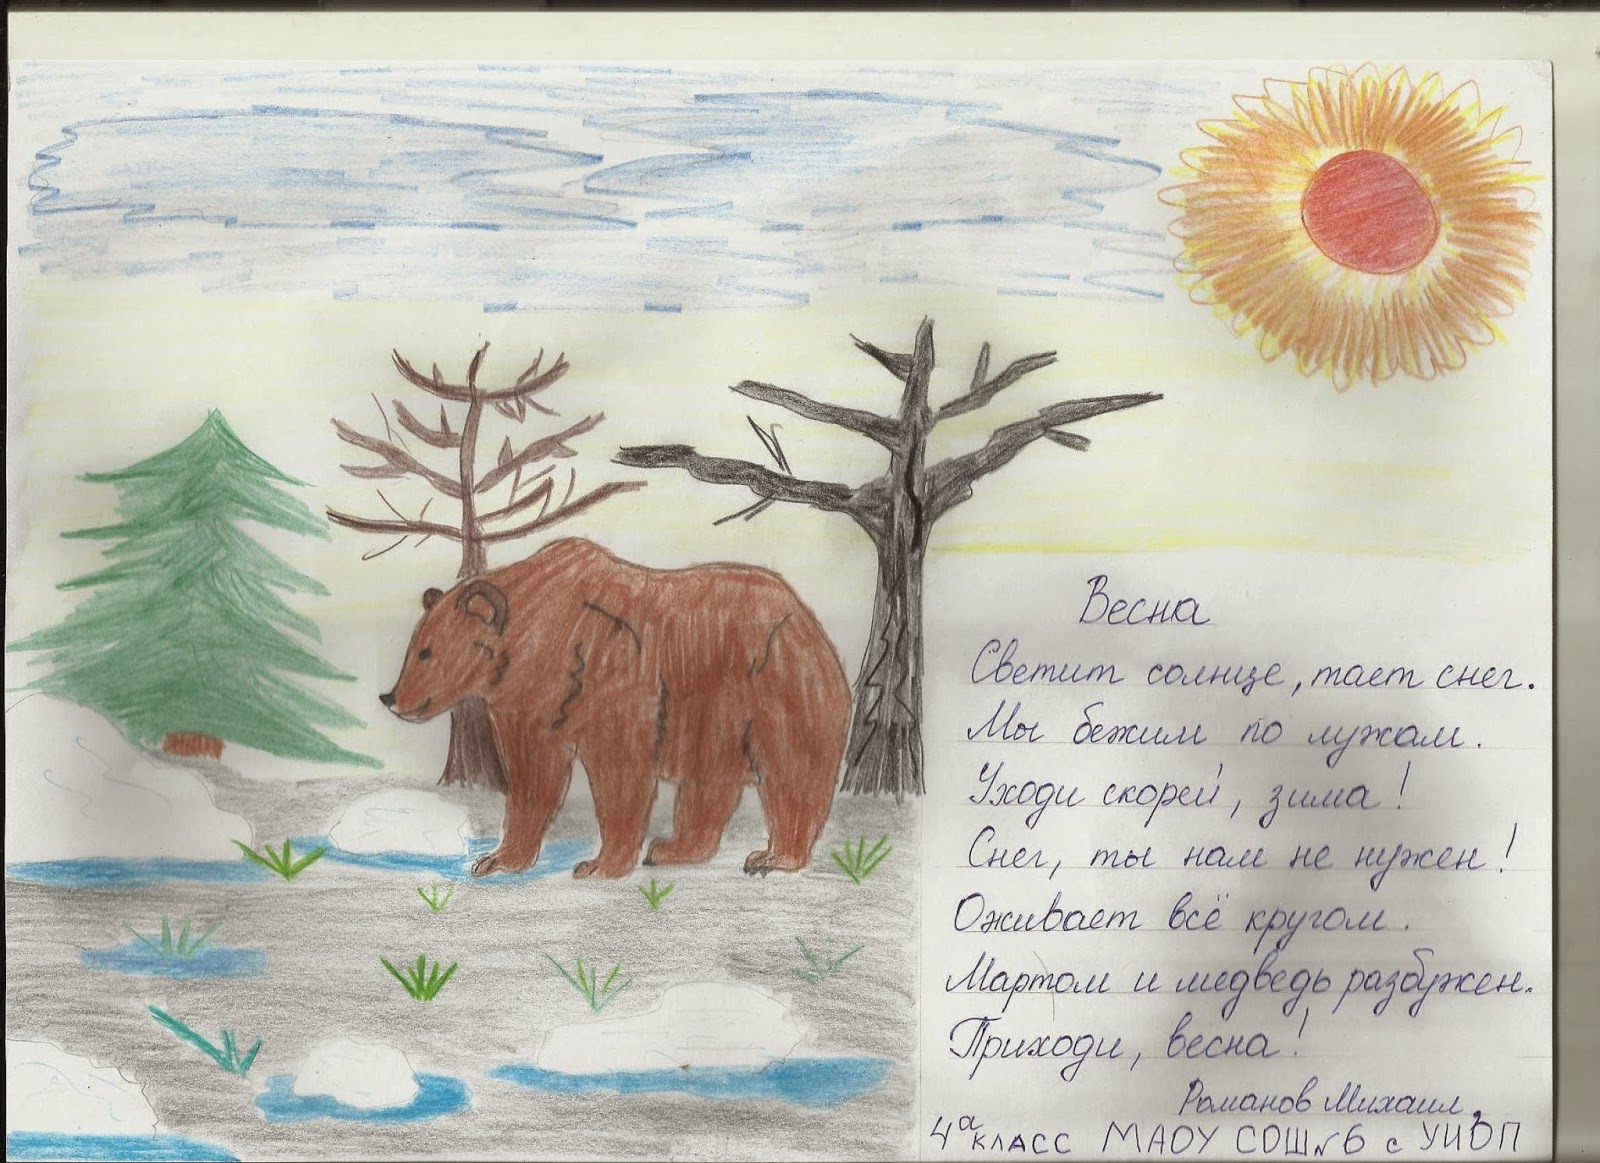 Весна
Светит солнце, тает снег.
Мы бежим по лужам.
Уходи скорей, зима!
Снег, ты нам не нужен!
Оживает всё кругом.
Мартом и медведь разбужен.
Приходи, весна!
Романов Михаил,
4а класс МАОУ СОШ№6 с УИОП